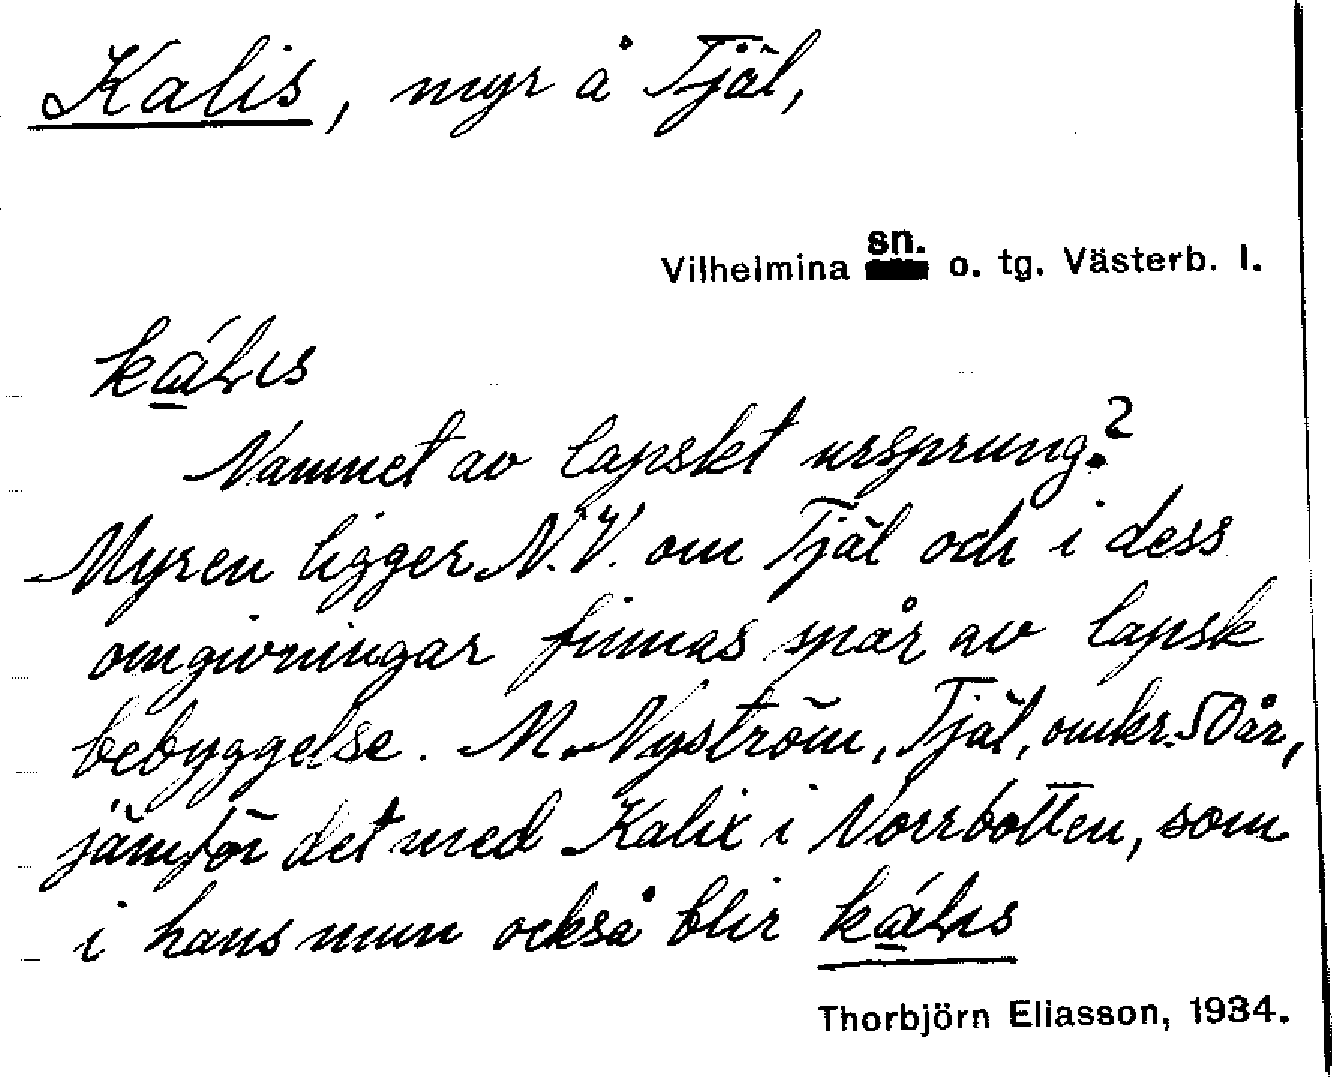 Kalis, myr å Tjäl,
Vilhelmina sn. o. tg. Västerb. l.
kálıs
Namnet av lapskt ursprung?
Myren ligger N.V. om Tjäl och i dess
omgivningar finnas spår av lapsk
bebyggelse. M. Nyström, Tjäl, omkr. 50 år,
jämför det med Kalix i Norrbotten, som
i hans mun också blir kálıs
Thorbjörn Eliasson, 1934.